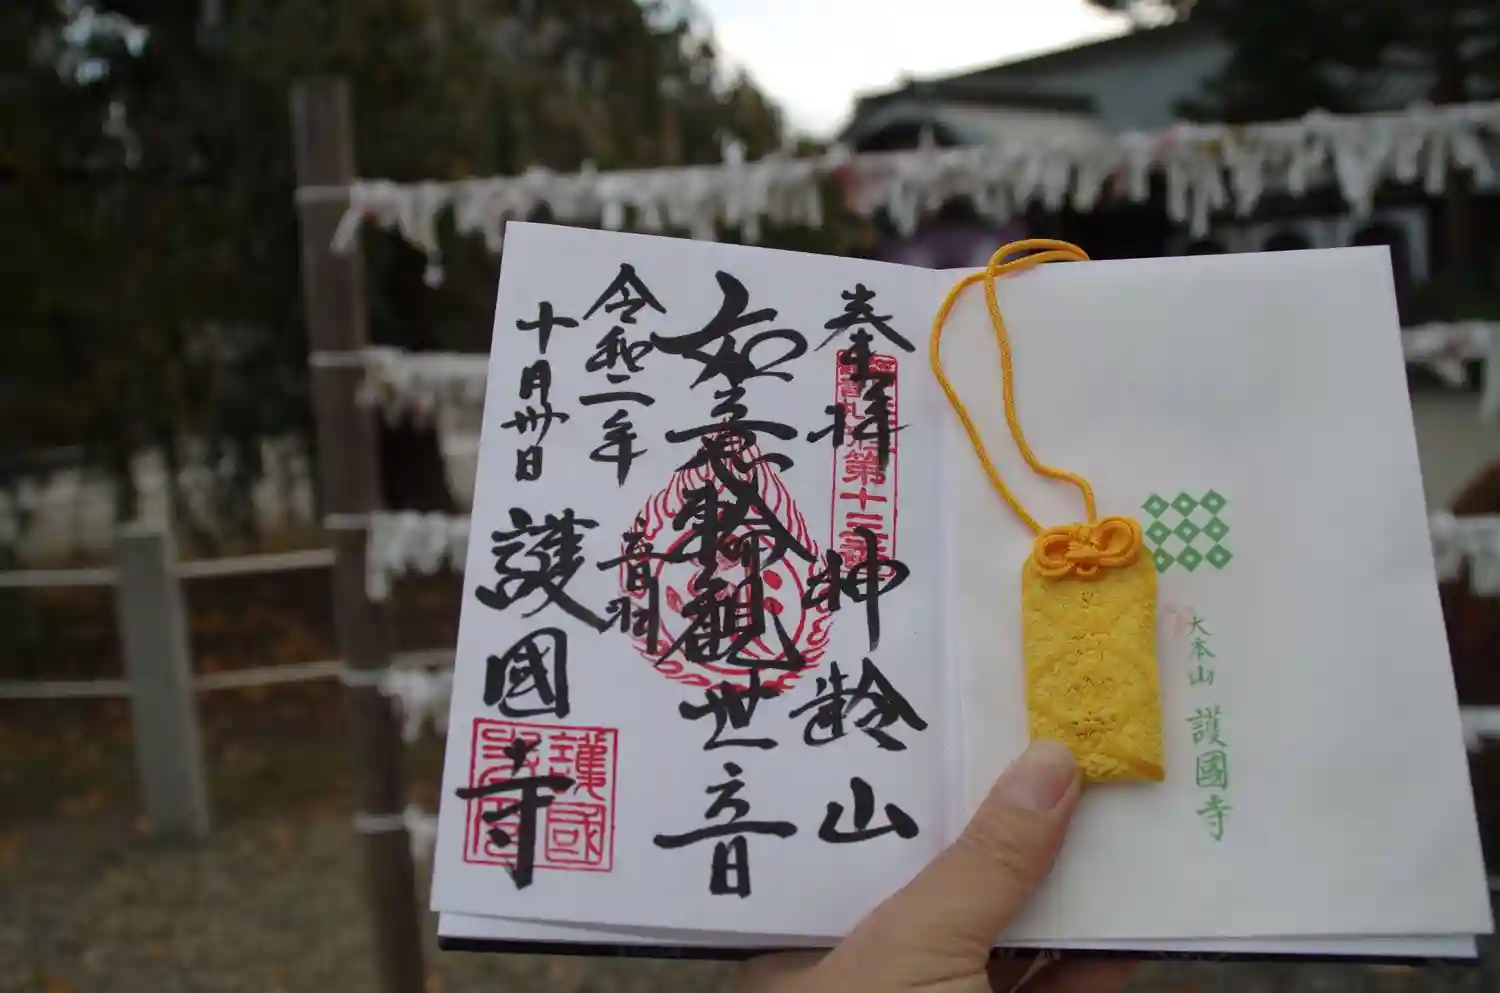 奉拝
神齢山
第十三番
如意輪觀世音
音羽
令和二年
十月卅日
護國寺
護國
大本山
護國寺